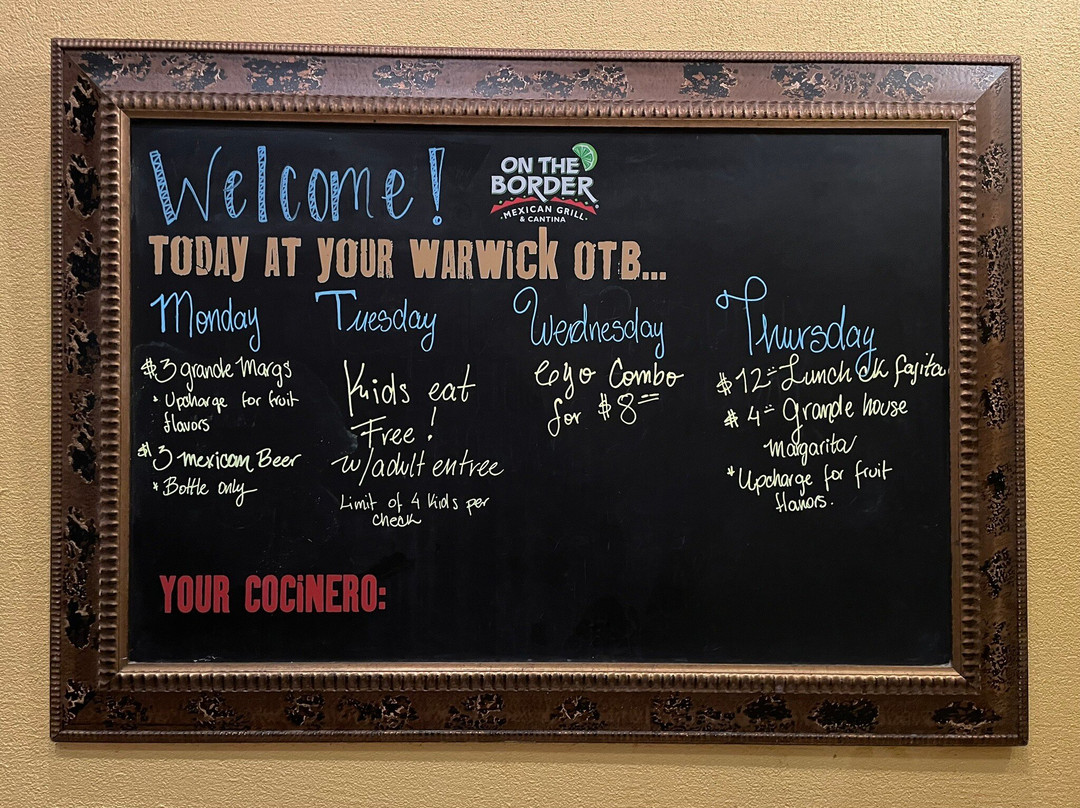 Welcome!
ON THE
BORDER
MEXICAN GRILL
& CANTINA
TODAY AT YOUR WARWiCK OTB...
Monday
$3 grande Margs
• Upcharge for fruit
flavors
$3 mexican Beer
* Bottle only
Tuesday
Kids eat
Free!
w/adult entree
Limit of 4 Kids per
check
Wednesday
CYO Combo
for $8
Thursday
$12 Lunch ck fajita
$4 Grande house
Margarita
*Upcharge for fruit
flavors.
YOUR COCiNERO: